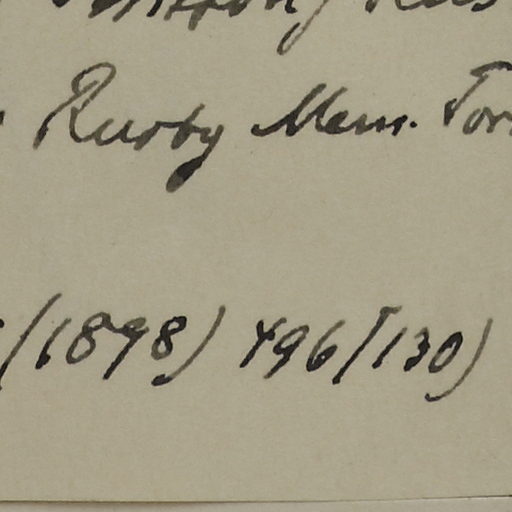 Rusby Mem. Tor
(1898) 496 [130)